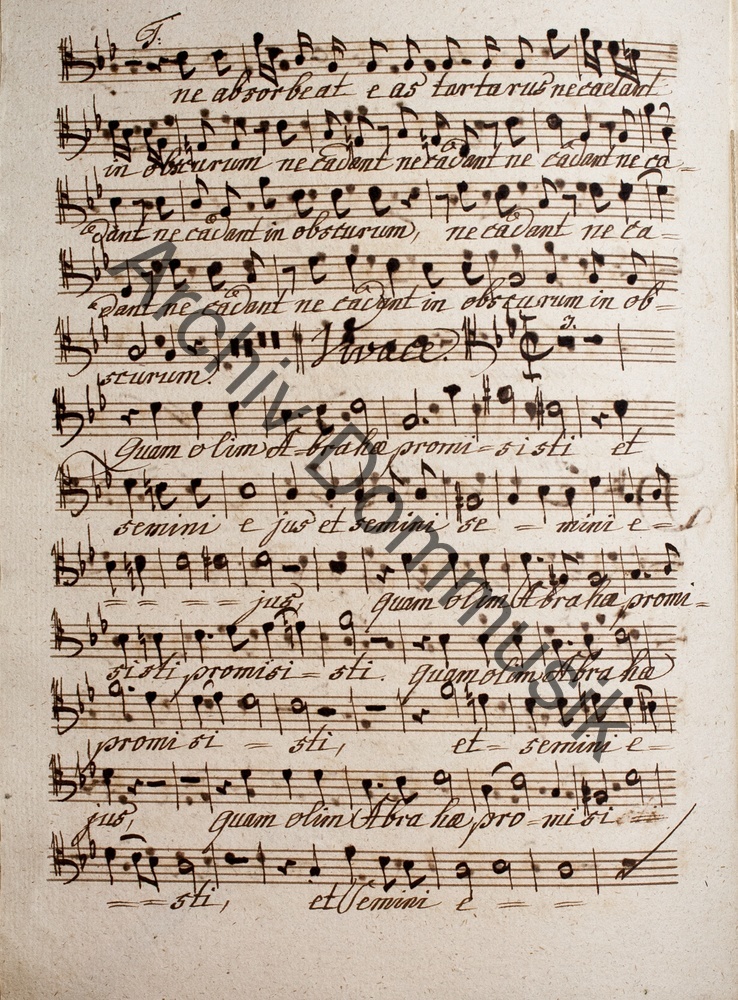 T:
ne absorbeat e as tartarus ne cadant
in obscurum ne cadant ne cadant ne cadant ne ca=
dant ne cadant in obscurum, ne cadant ne ca=
dant ne cadant ne cadant in obscurum in ob=
Vivace. 3.
scurum.
Quam olim A=brahæ promi=sisti et
semini ejus et semini se = mini e=
= = = = jus, quam olim Abrahæ promi=
sisti promisi = sti. Quam olim Abrahæ
promisi = sti, et= semini e=
jus, quam olim Abrahæ, pro=misi = =
= = sti, et Semini e = =
Archiv Dommusik